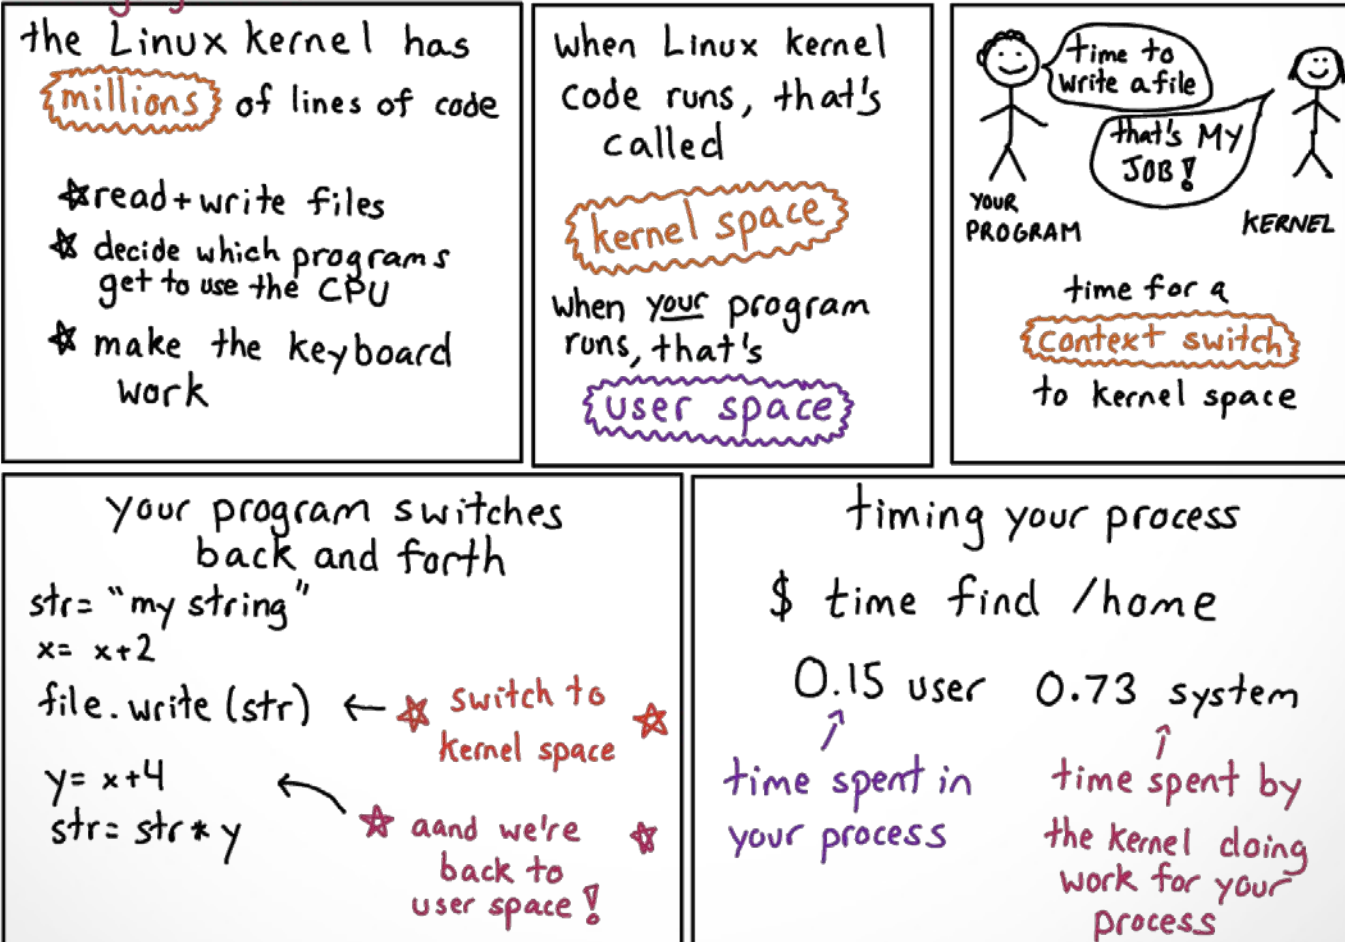 the Linux kernel has
millions of lines of code
☆ read + write files
☆ decide which programs
get to use the CPU
☆ make the keyboard
work
when Linux kernel
code runs, that's
called
kernel space
when your program
runs, that's
user space
time to
write a file
that's MY
JOB!
YOUR
PROGRAM
KERNEL
time for a
context switch
to kernel space
your program switches
back and forth
str= "my string"
x= x+2
file.write(str) ← ☆ switch to ☆
kernel space
y= x+4
str= str * y
☆ aand we're ☆
back to
user space!
timing your process
$ time find /home
0.15 user 0.73 system
time spent in
your process
time spent by
the kernel doing
work for your
process